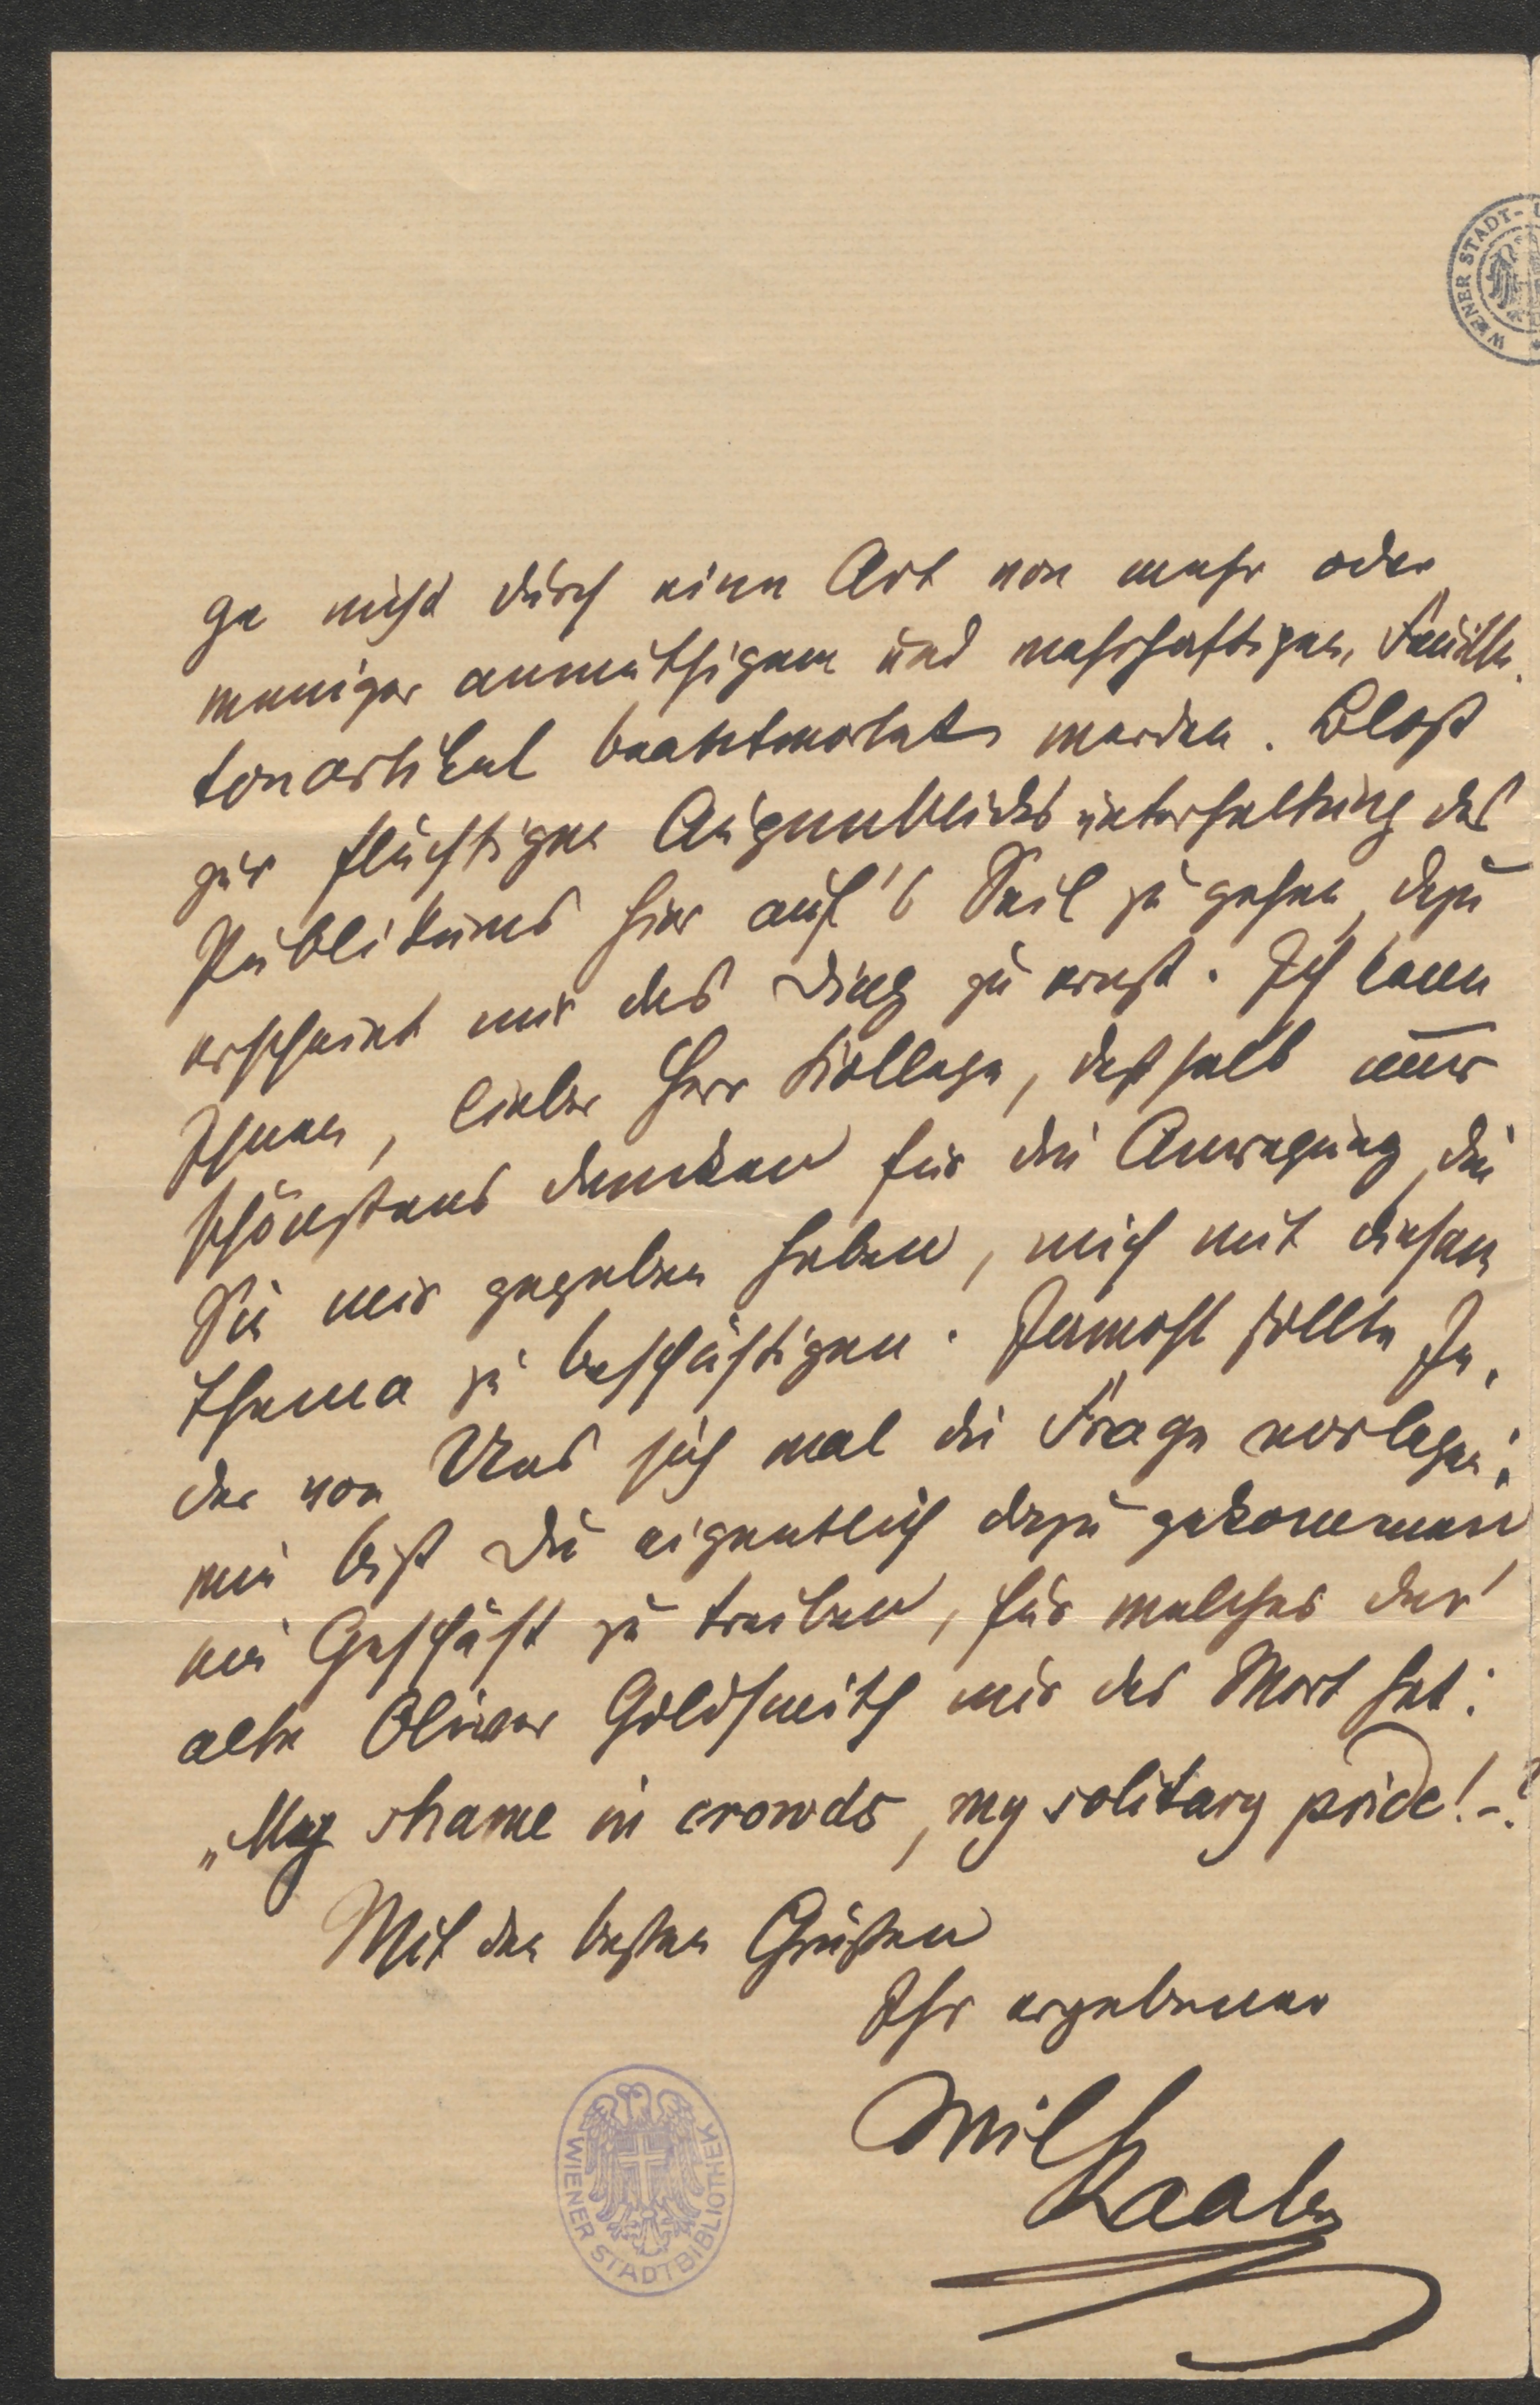 WIENER STADT-
ge nicht durch einen Art von mehr oder
weniger anmuthigem und wahrhaftigen, Feuille-
tonartikel beantwortet werden. Bloß
zur flüchtigen Augenblicksunterhaltung des
Publikums hier auf's Seil zu gehen, dazu
erscheint mir das Ding zu ernst. Ich kann
Ihnen, lieber Herr Kollege, deßhalb nur
schönstens danken für die Anregung, die
Sie mir gegeben haben, mich mit diesem
Thema zu beschäftigen. Jawohl sollte Je-
der von Uns sich mal die Frage vorlegen:
wie bist Du eigentlich dazu gekommen
ein Geschäft zu treiben, für welches der
alte Oliver Goldsmith nur das Wort hat:
„My shame in crowds, my solitary pride! –?
Mit den besten Grüßen
Ihr ergebener
Wilh
Raabe
WIENER STADTBIBLIOTHEK